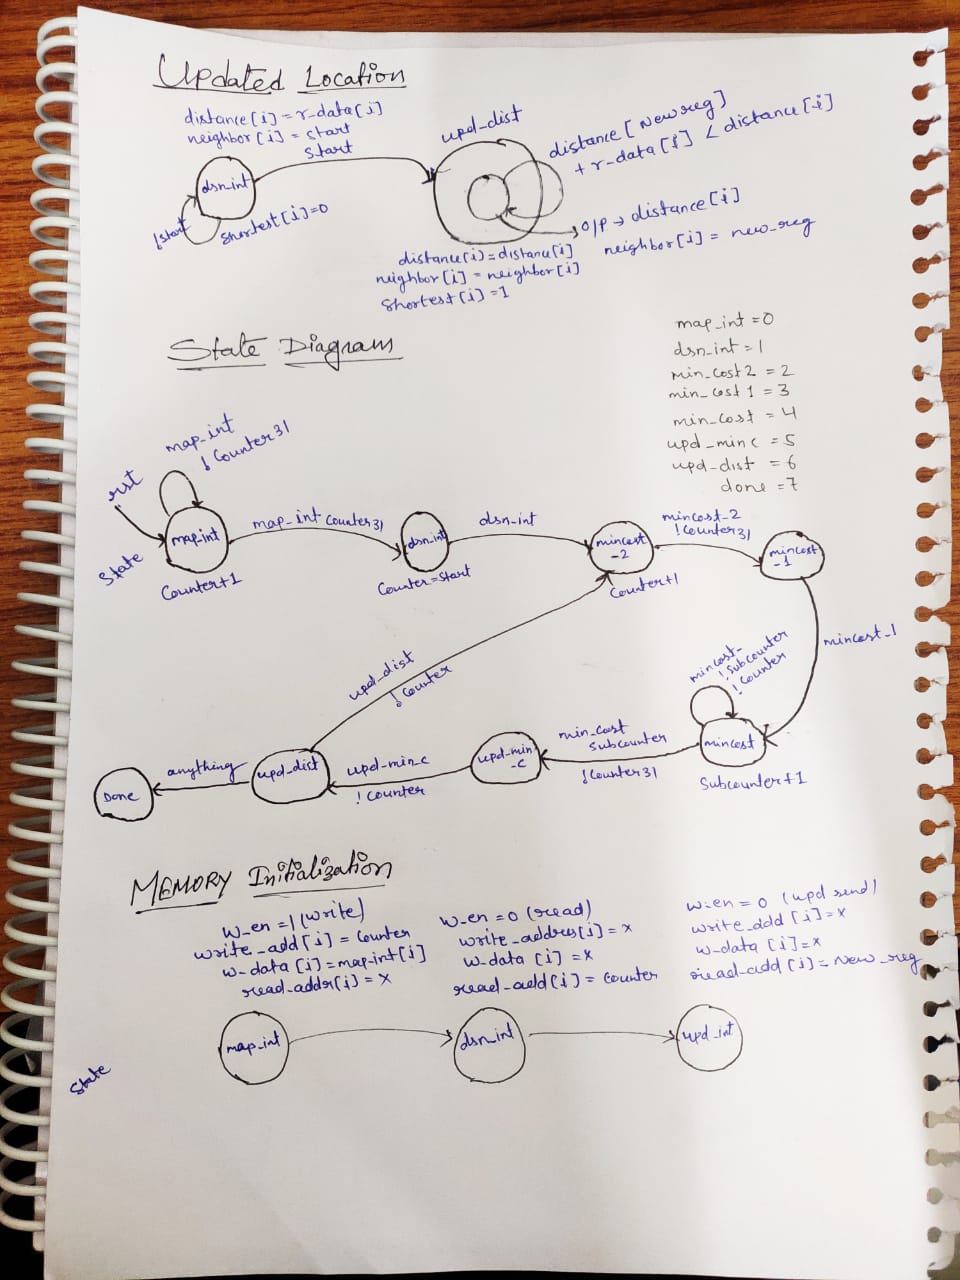 Updated Location
distance[i] = r-data[i]
neighbor[i] = start
start
dsn_int
!start
shortest[i]=0
upd_dist
distance[new reg]
+ r-data[i] < distance[i]
O/P → distance[i]
neighbor[i] = new_reg
distance[i]=distance[i]
neighbor[i] = neighbor[i]
Shortest[i]=1
State Diagram
map_int = 0
dsn_int = 1
min_cost 2 = 2
min_cost 1 = 3
min_cost = 4
upd_min c = 5
upd_dist = 6
done = 7
map_int
! Counter 31
rst
State
map_int
Counter+1
map_int counter31
dsn_int
Counter = start
dsn_int
mincost
-2
Counter+1
mincost_2
!Counter31
mincost
-1
mincost_1
mincost-
! subcounter
! Counter
mincost
Subcounter+1
min_cost
subcounter
! Counter31
upd-min
-c
upd-min_c
! Counter
upd_dist
upd_dist
! Counter
anything
Done
MEMORY Initialization
w_en = 1 (write)
write_add[i] = counter
w_data [i] = map-int[i]
read-addr[i] = x
w_en = 0 (read)
write_address[i] = x
w_data [i] = x
read_add[i] = counter
w-en = 0 (upd send)
write_add [i] = x
w_data [i] = x
read-add [i] = new_reg
map_int
dsn_int
upd_int
State